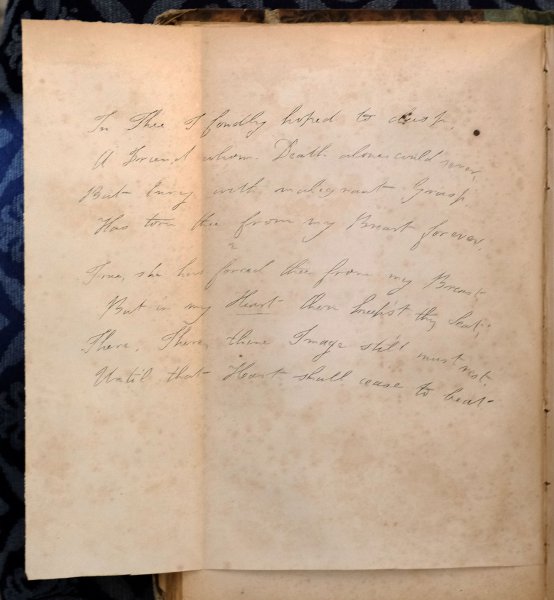 In Thee I fondly hoped to clasp,
A Friend whom Death alone could sever,
But envy with malignant Grasp
Has torn thee from my Breast forever.
True, she has forced thee from my Breast
But in my Heart thou keep'st thy Seat;
There, There, thine Image still must rest.
Until that Heart shall cease to beat-